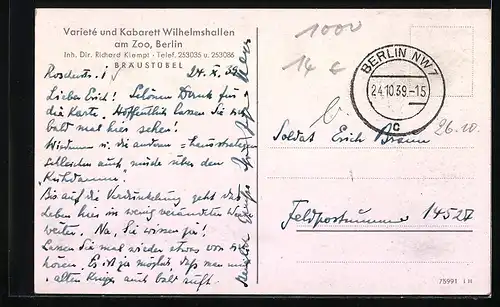 Varieté und Kabarett Wilhelmshallen
am Zoo, Berlin
Inh. Dir. Richard Klempt - Telef. 253035 u. 253086
BRÄUSTÜBEL
24. X. 39
Lieber Erich! Schönen Dank für
die Karte. Hoffentlich lassen Sie sich
bald mal hier sehen!
und die anderen
auch müde über den
Bis auf die Verdunkelung geht das
Leben hier in wenig veränderter Weise
weiter. Na, Sie wissen ja!
Lassen Sie mal wieder etwas von sich
hören. Es ist ja möglich, daß man uns
alten Krieger auch bald ruft.
1000
14 €
BERLIN NW7
24.10.39.-15
c
26.10.
Soldat Erich Braun
Feldpostnummer 14527
75991 I II